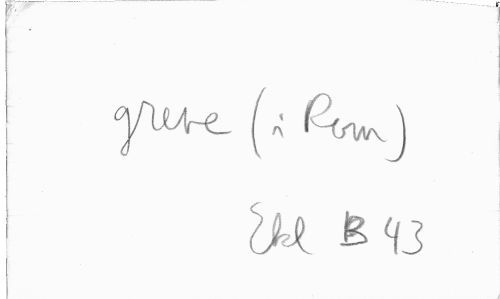 greve (i Rom)
Ekl B 43